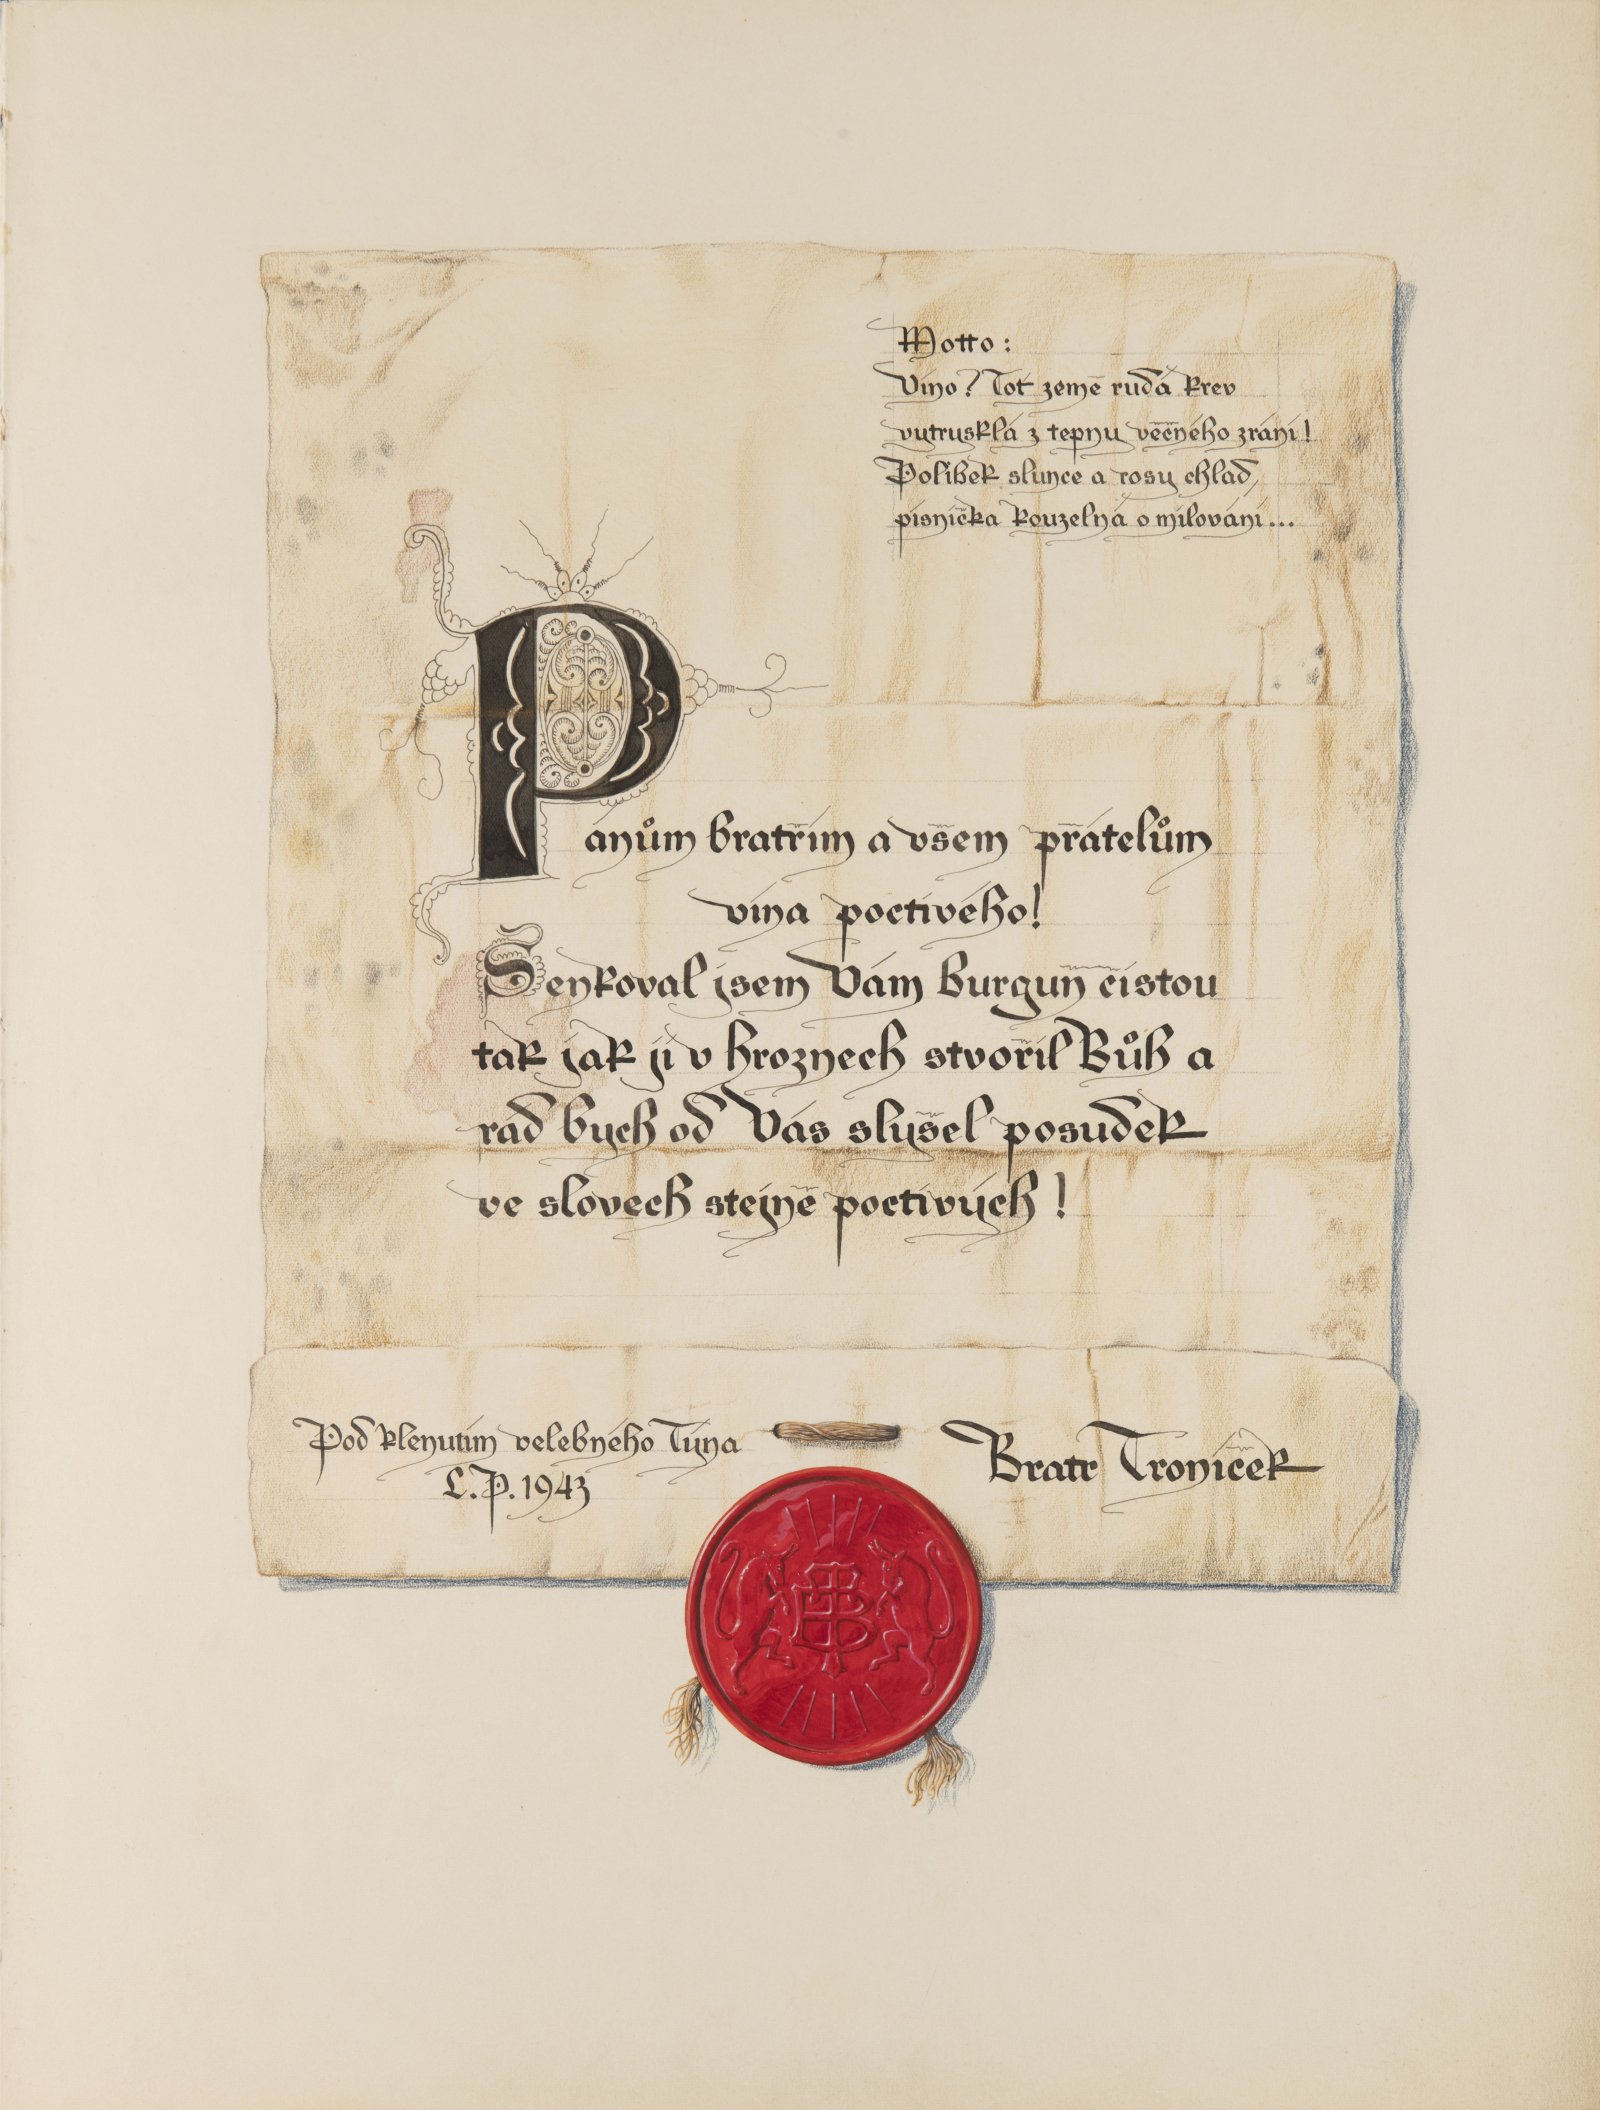 Motto:
Víno? Toť země rudá krev
vytrysklá z tepny věčného zrání!
Polibek slunce a rosy chlad,
písnička kouzelná o milování...
Pánům bratřím a všem přátelům
vína poctivého!
Šenkoval jsem Vám burguň čistou
tak jak ji v hroznech stvořil Bůh a
rád bych od Vás slyšel posudek
ve slovech stejně poctivých!
Pod klenutím velebného Týna
L.P. 1943
Bratr Troníček